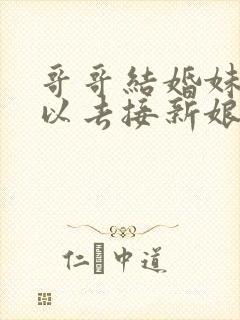 哥哥結婚妹
以去接新娘
仁 中道